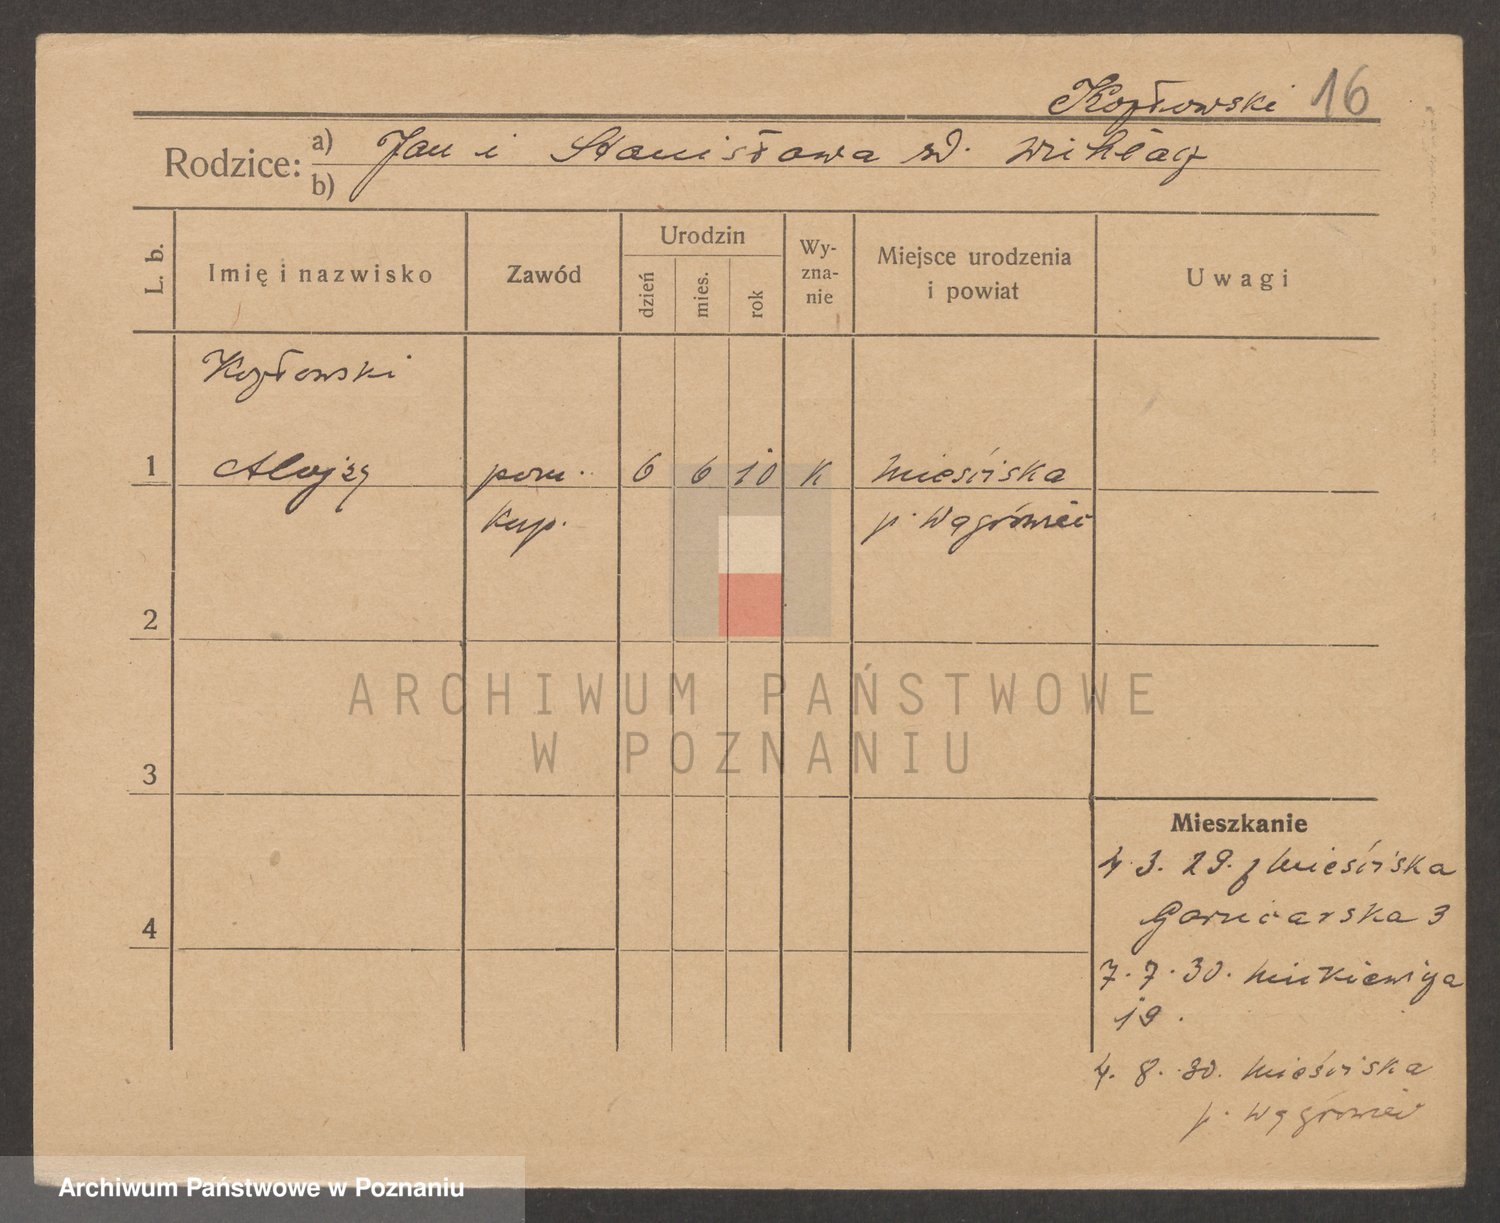 Kozłowski 16
Rodzice: a) Jan i Stanisława rd.
b)
L. b. Imię i nazwisko Zawód Urodzin dzień mies. rok Wy-zna-nie Miejsce urodzenia i powiat Uwagi
Kozłowski
1 Alojzy pom. 6 6 10 K Mieściska
kup. p. Wągrowiec
2
3
4
Mieszkanie
4. 3. 29. z Mieściska
Garncarska 3
7. 7. 30. Mickiewicza
19.
4. 8. 30. Mieściska
p. Wągrowiec
ARCHIWUM PAŃSTWOWE
W POZNANIU
Archiwum Państwowe w Poznaniu